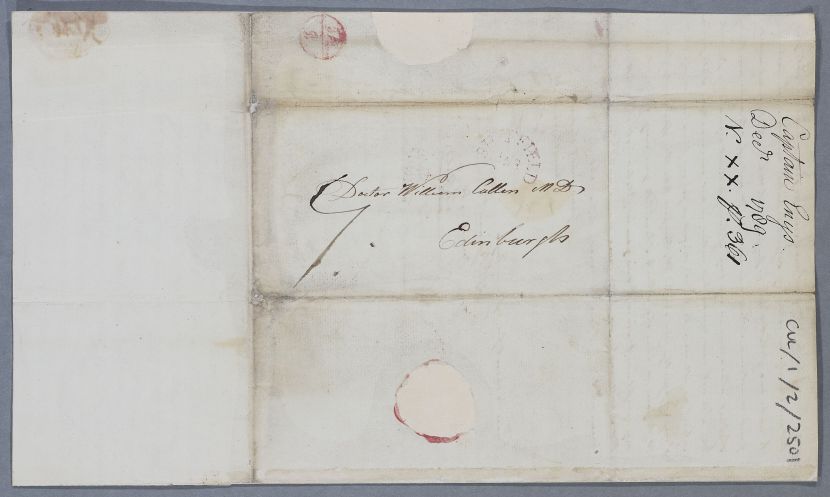 Doctor William Cullen M.D.
Edinburgh
7
Captain Enys.
Decr 1789.
N. XX. p. 361
CUL/1/2/2501